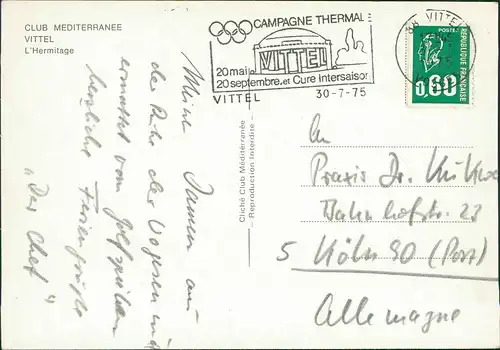 CLUB MEDITERRANEE
VITTEL
L'Hermitage
CAMPAGNE THERMALE
VITTEL
20 mai a
20 septembre et Cure intersaison
VITTEL
30-7-75
88 VITTEL
POSTES
0,60
REPUBLIQUE FRANÇAISE
Meine Damen aus
der Ruhe der Vogesen und
ermattet vom Golfspielen
herzliche Feriengrüße
"Der Chef"
Cliché Club Méditerranée
- Reproduction Interdite -
An
Praxis Dr.
Bahnhofstr. 23
5 Köln 90 (Porz)
Allemagne